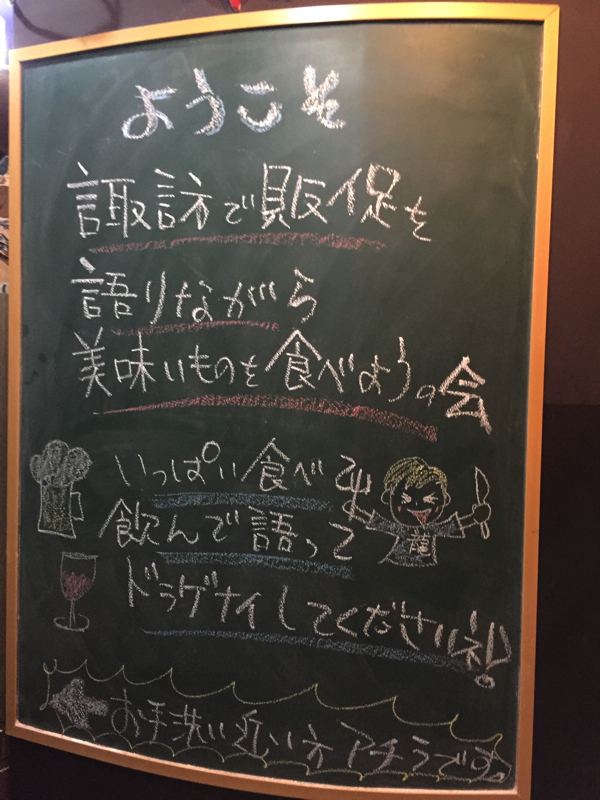 ようこそ
諏訪で販促を
語りながら
美味いものを食べようの会
いっぱい食べて
飲んで語って
龍
ドラゲナイしてください!
お手洗い近い方アチラです。